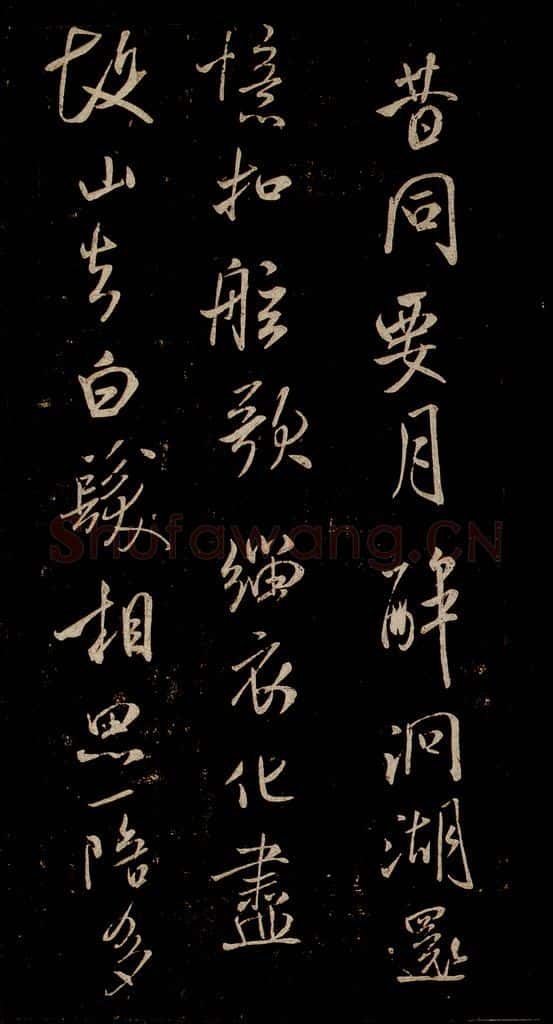 昔同要月醉泂湖還
憶扣舷歌緇衣化盡
故山去白髮相思一陪多
Shufawang.CN